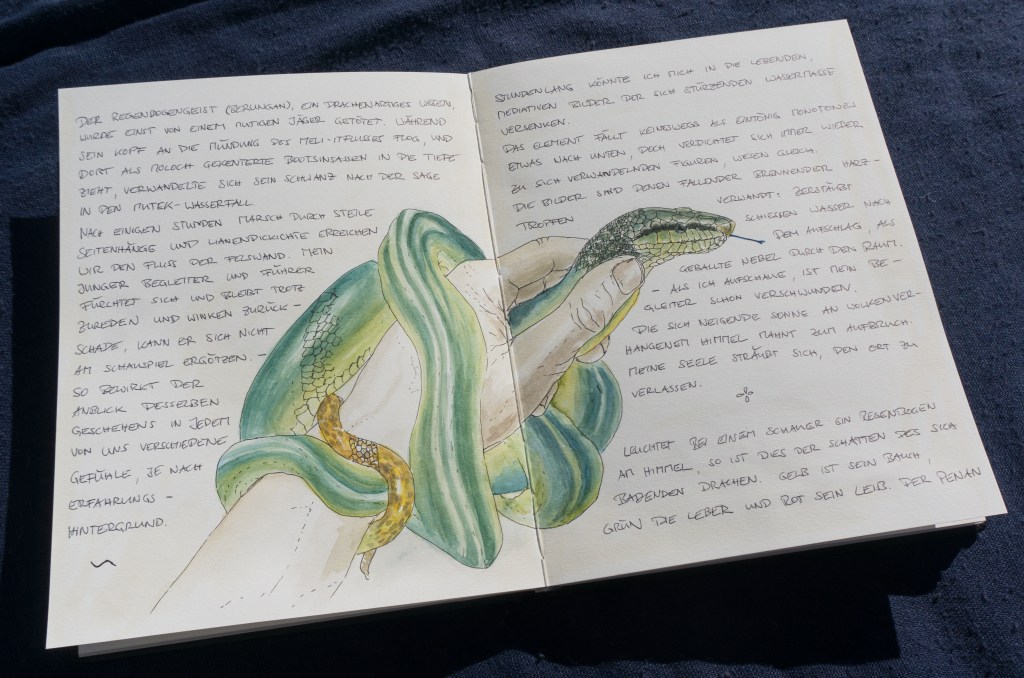 DER REGENBOGENGEIST (BERUNGAN), EIN DRACHENARTIGES WESEN,
WURDE EINST VON EINEM MUTIGEN JÄGER GETÖTET. WÄHREND
SEIN KOPF AN DIE MÜNDUNG DES MELI-ITFLUSSES FLOG, UND
DORT ALS MOLOCH GEKENTERTE BOOTSINSASSEN IN DIE TIEFE
ZIEHT, VERWANDELTE SICH SEIN SCHWANZ NACH DER SAGE
IN DEN MUTEK-WASSERFALL.
NACH EINIGEN STUNDEN MARSCH DURCH STEILE
SEITENHÄNGE UND LIANENDICKICHTE ERREICHEN
WIR DEN FLUSS DER FELSWAND. MEIN
JUNGER BEGLEITER UND FÜHRER
FÜRCHTET SICH UND BLEIBT TROTZ
ZUREDEN UND WINKEN ZURÜCK –
SCHADE, KANN ER SICH NICHT
AM SCHAUSPIEL ERGÖTZEN. –
SO BEWIRKT DER
ANBLICK DESSELBEN
GESCHEHENS IN JEDEM
VON UNS VERSCHIEDENE
GEFÜHLE, JE NACH
ERFAHRUNGS –
HINTERGRUND.
STUNDENLANG KÖNNTE ICH MICH IN DIE LEBENDEN,
MEDIATIVEN BILDER DER SICH STÜRZENDEN WASSERMASSE
VERSENKEN.
DAS ELEMENT FÄLLT KEINESWEGS ALS EINTÖNIG MONOTONES
ETWAS NACH UNTEN, DOCH VERDICHTET SICH IMMER WIEDER
ZU SICH VERWANDELNDEN FIGUREN, WESEN GLEICH.
DIE BILDER SIND DENEN FALLENDER BRENNENDER HARZ –
TROPFEN VERWANDT: ZERSTÄUBT
SCHIESSEN WASSER NACH
DEM AUFSCHLAG, ALS
GEBALLTE NEBEL DURCH DEN RAUM.
– ALS ICH AUFSCHAUE, IST MEIN BE –
GLEITER SCHON VERSCHWUNDEN.
DIE SICH NEIGENDE SONNE AN WOLKENVER-
HANGENEM HIMMEL MAHNT ZUM AUFBRUCH.
MEINE SEELE STRÄUBT SICH, DEN ORT ZU
VERLASSEN.
LEUCHTET BEI EINEM SCHAUER EIN REGENBOGEN
AM HIMMEL, SO IST DIES DER SCHATTEN DES SICH
BADENDEN DRACHEN. GELB IST SEIN BAUCH,
GRÜN DIE LEBER UND ROT SEIN LEIB. DER PENAN